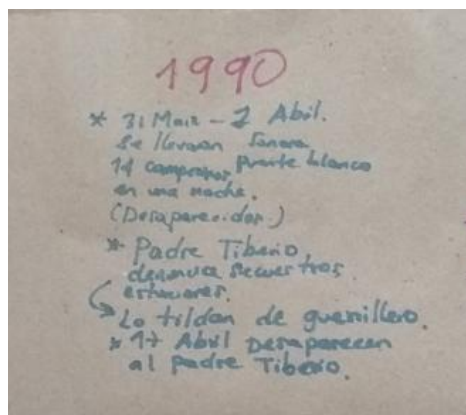 1990
* 31 Marz - 1 Abril.
Se llevaron Sonora
14 campesinos Puente blanco
en una noche.
(Desaparecidos.)
* Padre Tiberio
denuncia secuestros
Lo tildan de guerrillero.
* 17 Abril Desaparecen
al padre Tiberio.